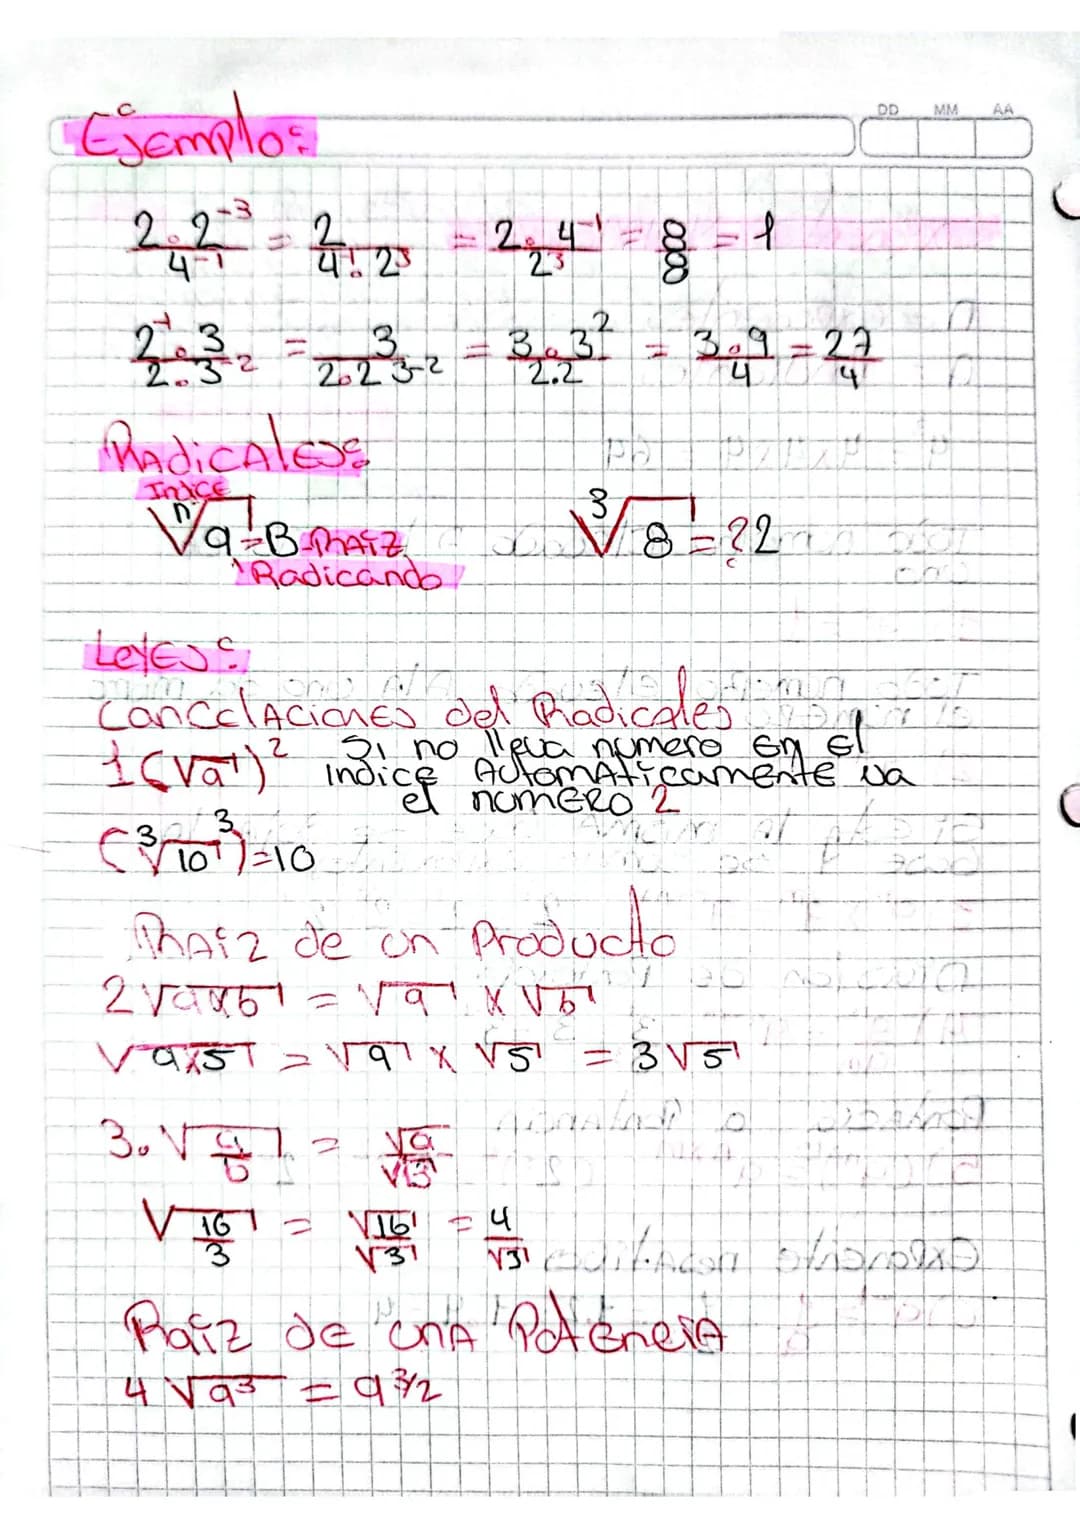 Ejemplo:
DD MM AA
2.2⁻³/4⁻¹ = 2/4¹.2³ = 2.4⁻¹/2³ = 8/8 = 1
2⁻¹.3/2.3⁻² = 3/2.2 3⁻² = 3.3²/2.2 = 3.9/4 = 27/4
RAdiCAlES:
IndicE
ⁿ√a = B RAíZ ³√8 = ? 2
Radicando
LeyES:
CanCelACionES del Radicales
1 (√a)² Si no lleva numero En El
indice AutomAticamEntE va
el numERO 2
(³√10³)=10
RAiz de un Producto
2 √axb = √a x √b
√9x5 = √9 x √5 = 3√5
3. √a/b = √a/√B
√16/3 = √16/√3 = 4/√3
Raiz de unA PotEnciA
4 √a³ = a³/²